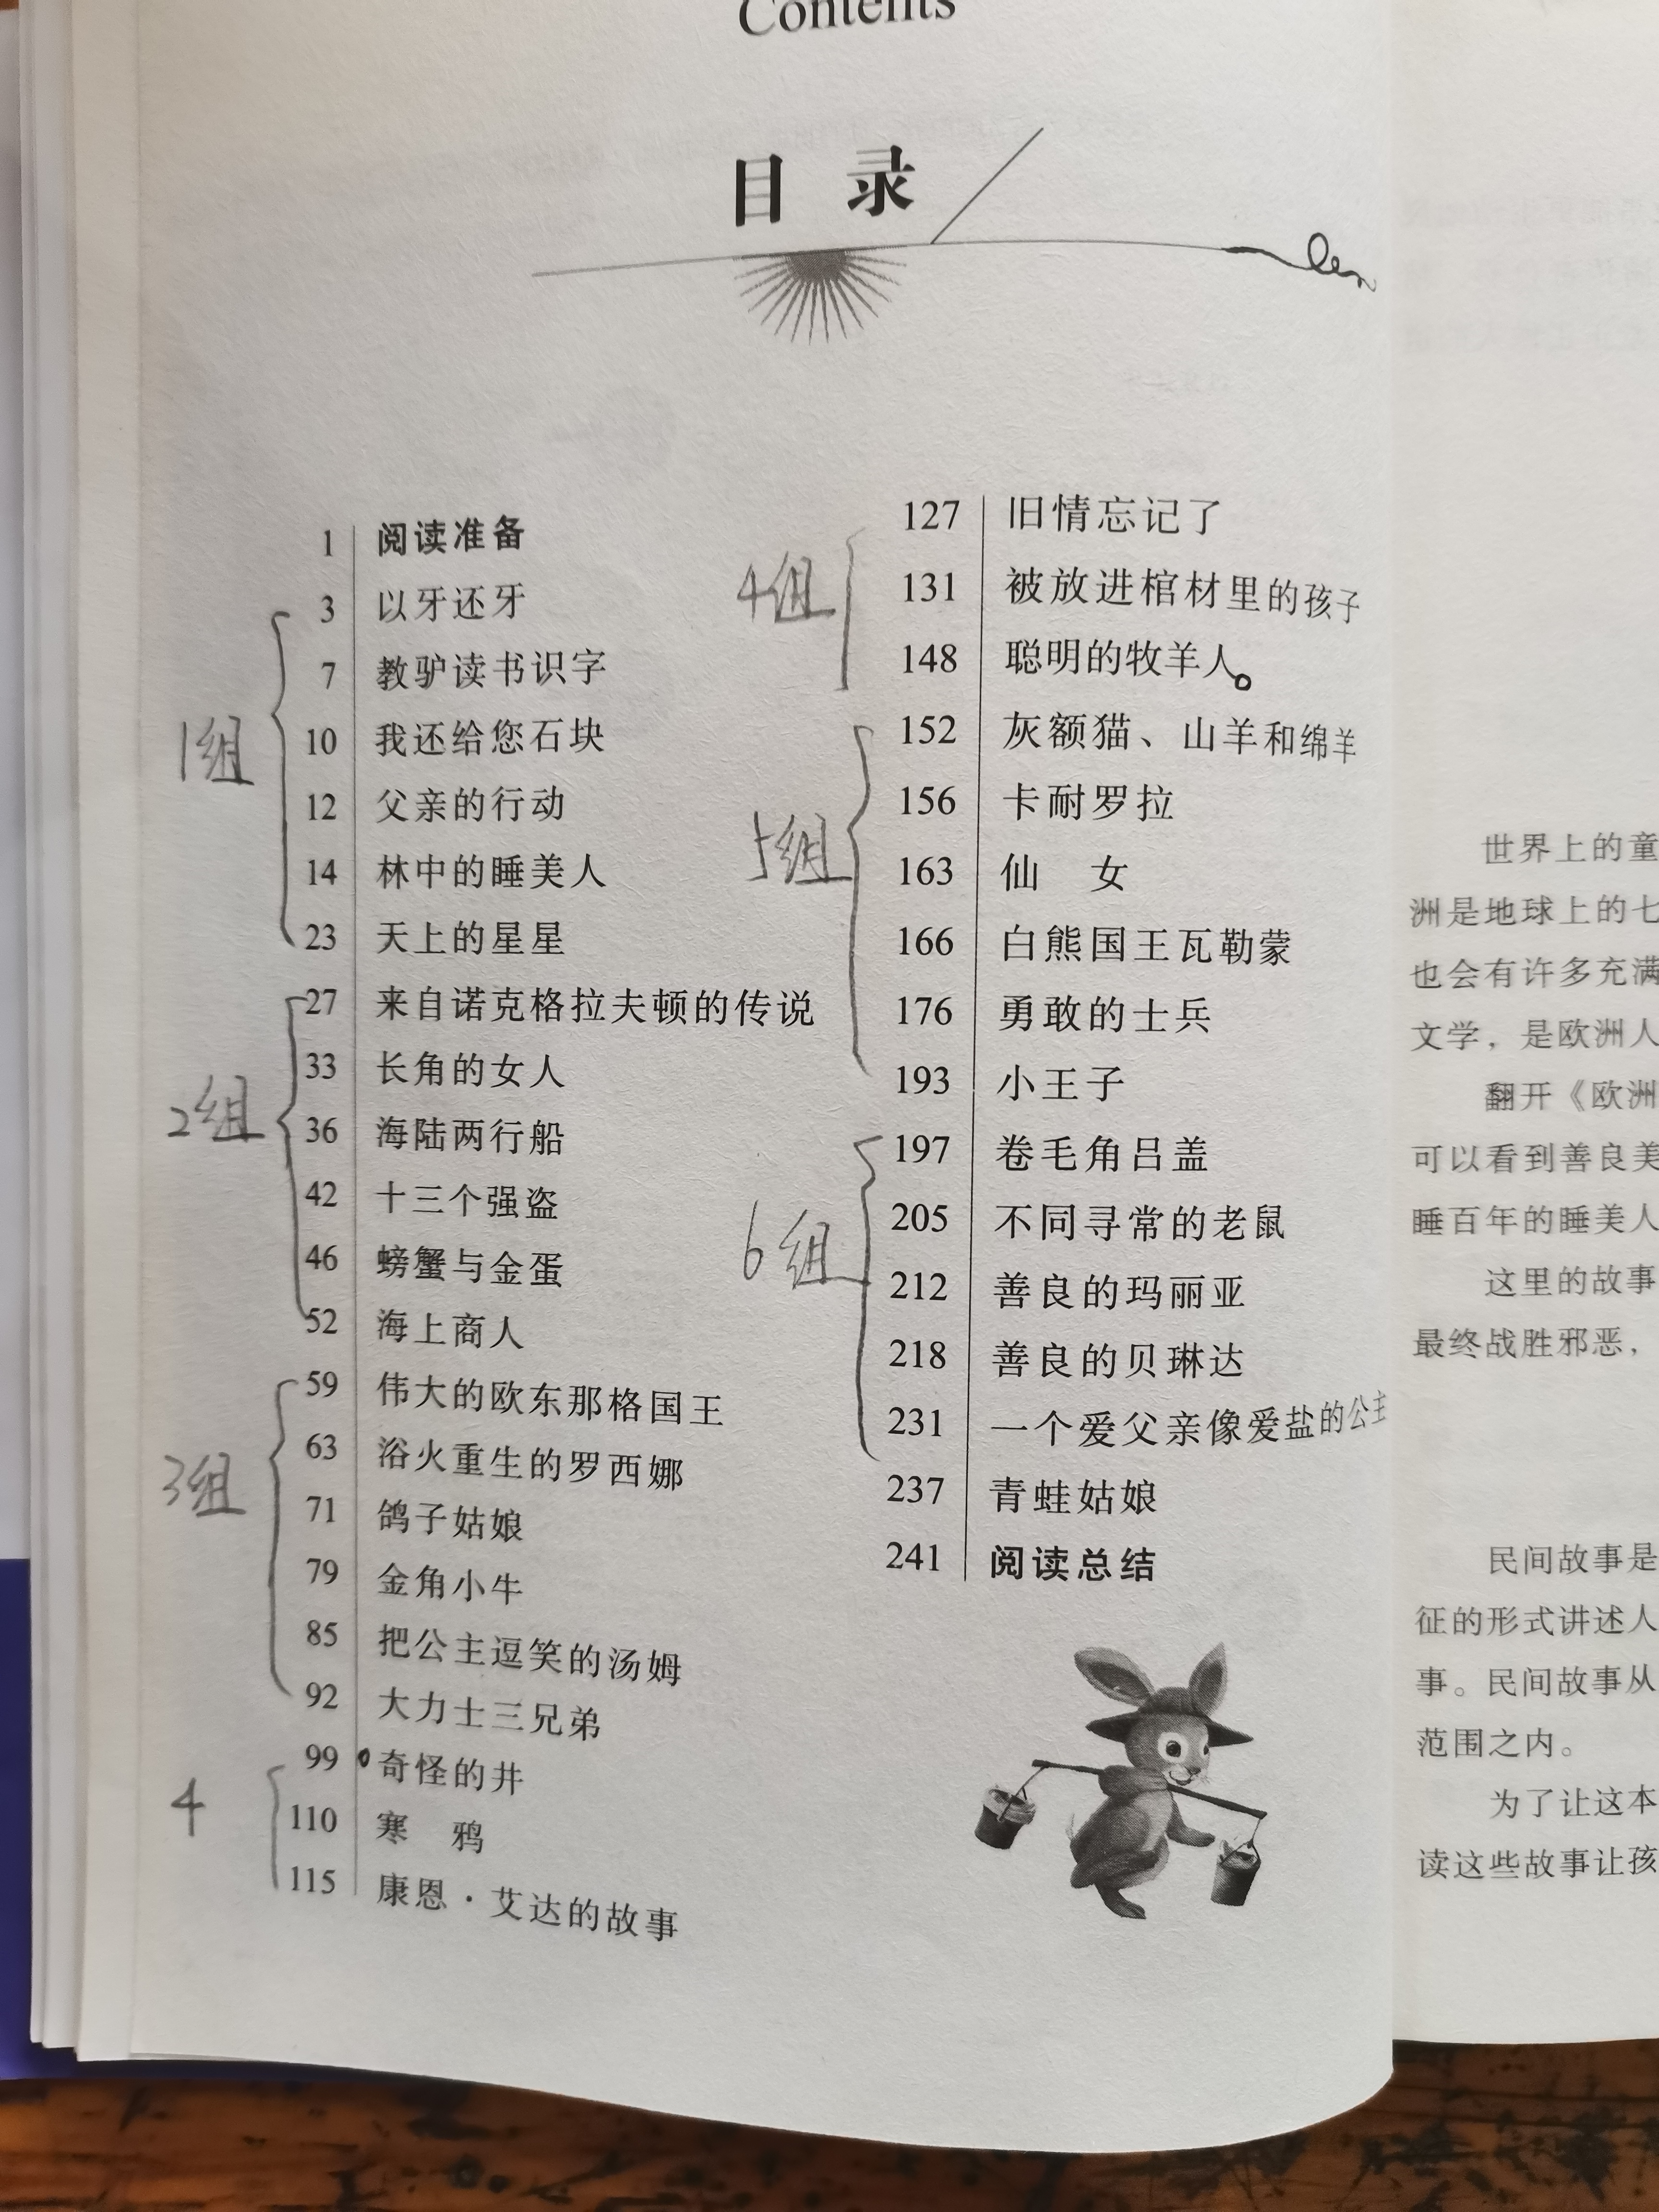 Contents
目录
1 阅读准备
3 以牙还牙
7 教驴读书识字
1组
10 我还给您石块
12 父亲的行动
14 林中的睡美人
23 天上的星星
27 来自诺克格拉夫顿的传说
33 长角的女人
2组
36 海陆两行船
42 十三个强盗
46 螃蟹与金蛋
52 海上商人
59 伟大的欧东那格国王
63 浴火重生的罗西娜
3组
71 鸽子姑娘
79 金角小牛
85 把公主逗笑的汤姆
92 大力士三兄弟
99 奇怪的井
4
110 寒鸦
115 康恩·艾达的故事
127 旧情忘记了
4组
131 被放进棺材里的孩子
148 聪明的牧羊人
152 灰额猫、山羊和绵羊
156 卡耐罗拉
5组
163 仙女
166 白熊国王瓦勒蒙
176 勇敢的士兵
193 小王子
197 卷毛角吕盖
205 不同寻常的老鼠
6组
212 善良的玛丽亚
218 善良的贝琳达
231 一个爱父亲像爱盐的公主
237 青蛙姑娘
241 阅读总结
世界上的童
洲是地球上的七
也会有许多充满
文学，是欧洲人
翻开《欧洲
可以看到善良美
睡百年的睡美人
这里的故事
最终战胜邪恶，
民间故事是
征的形式讲述人
事。民间故事从
范围之内。
为了让这本
读这些故事让孩